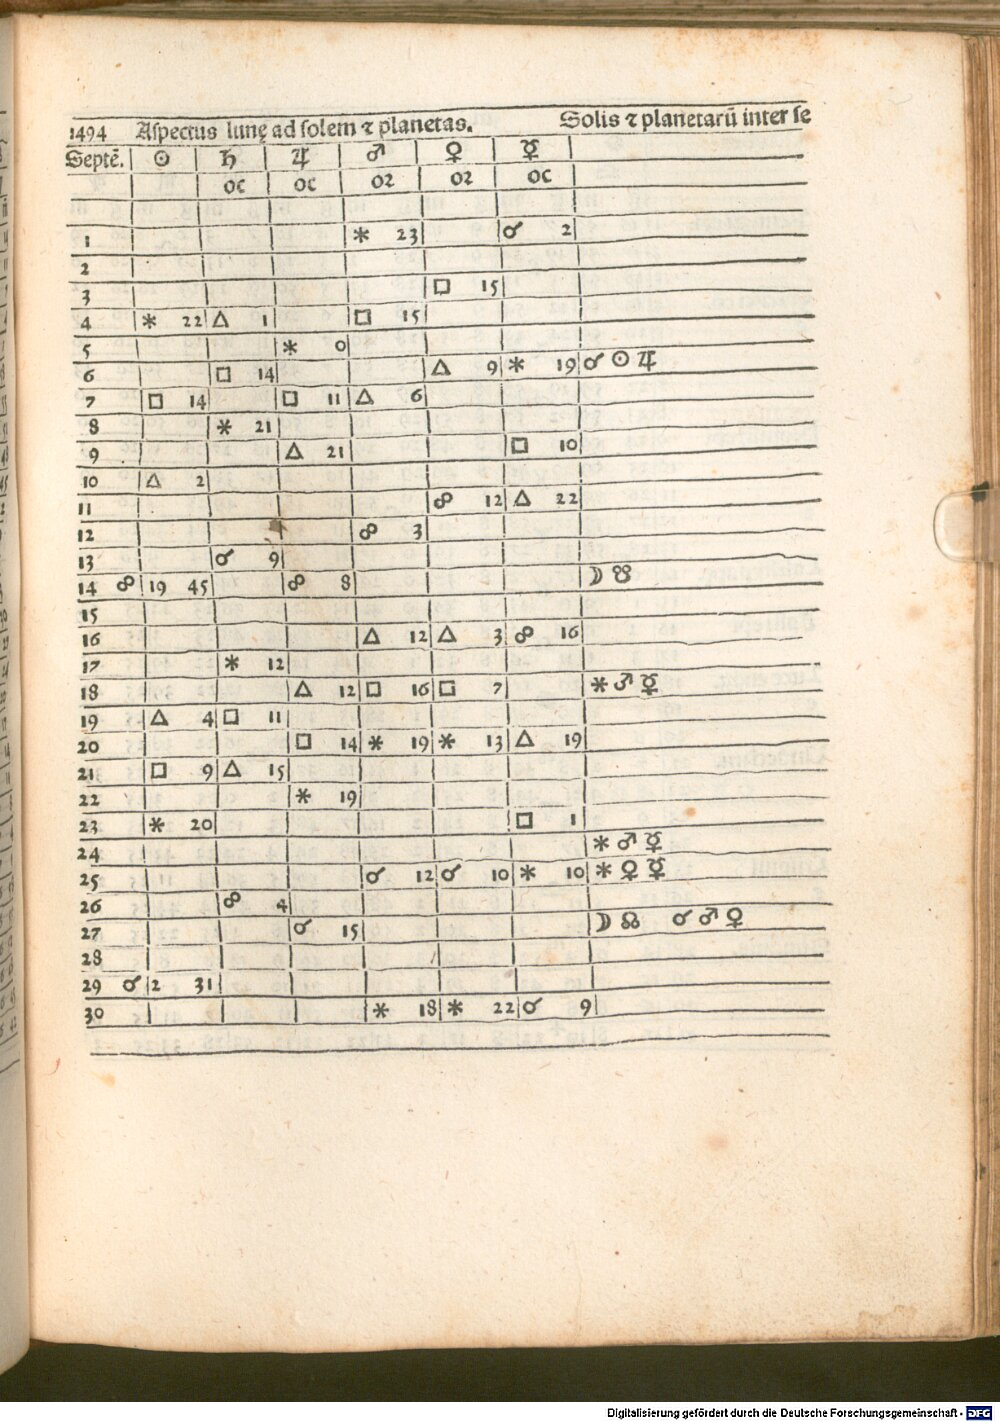 1494 Aſpectus lunę ad ſolem ⁊ planetas. Solis ⁊ planetarū inter ſe
Septē. ☉ ♄ ♃ ♂ ♀ ☿
oc oc oz oz oc
1 ⚹ 23 ☌ 2
2
3 □ 15
4 ⚹ 22 △ 1 □ 15
5 ⚹ 0
6 □ 14 △ 9 ⚹ 19 ☌ ☉ ♃
7 □ 14 □ 11 △ 6
8 ⚹ 21
9 △ 21 □ 10
10 △ 2
11 ☍ 12 △ 22
12 ☍ 3
13 ☌ 9
14 ☍ 19 45 ☍ 8 ☽ ☋
15
16 △ 12 △ 3 ☍ 16
17 ⚹ 12
18 △ 12 □ 16 □ 7 ⚹ ♂ ☿
19 △ 4 □ 11
20 □ 14 ⚹ 19 ⚹ 13 △ 19
21 □ 9 △ 15
22 ⚹ 19
23 ⚹ 20 □ 1
24 ⚹ ♂ ☿
25 ☌ 12 ☌ 10 ⚹ 10 ⚹ ♀ ☿
26 ☍ 4
27 ☌ 15 ☽ ☊ ☌ ♂ ♀
28
29 ☌ 2 31
30 ⚹ 18 ⚹ 22 ☌ 9
Digitalisierung gefördert durch die Deutsche Forschungsgemeinschaft - DFG